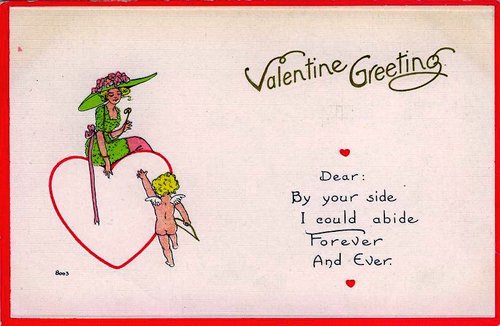 Valentine Greeting
Dear:
By your side
I could abide
Forever
And Ever.
8003